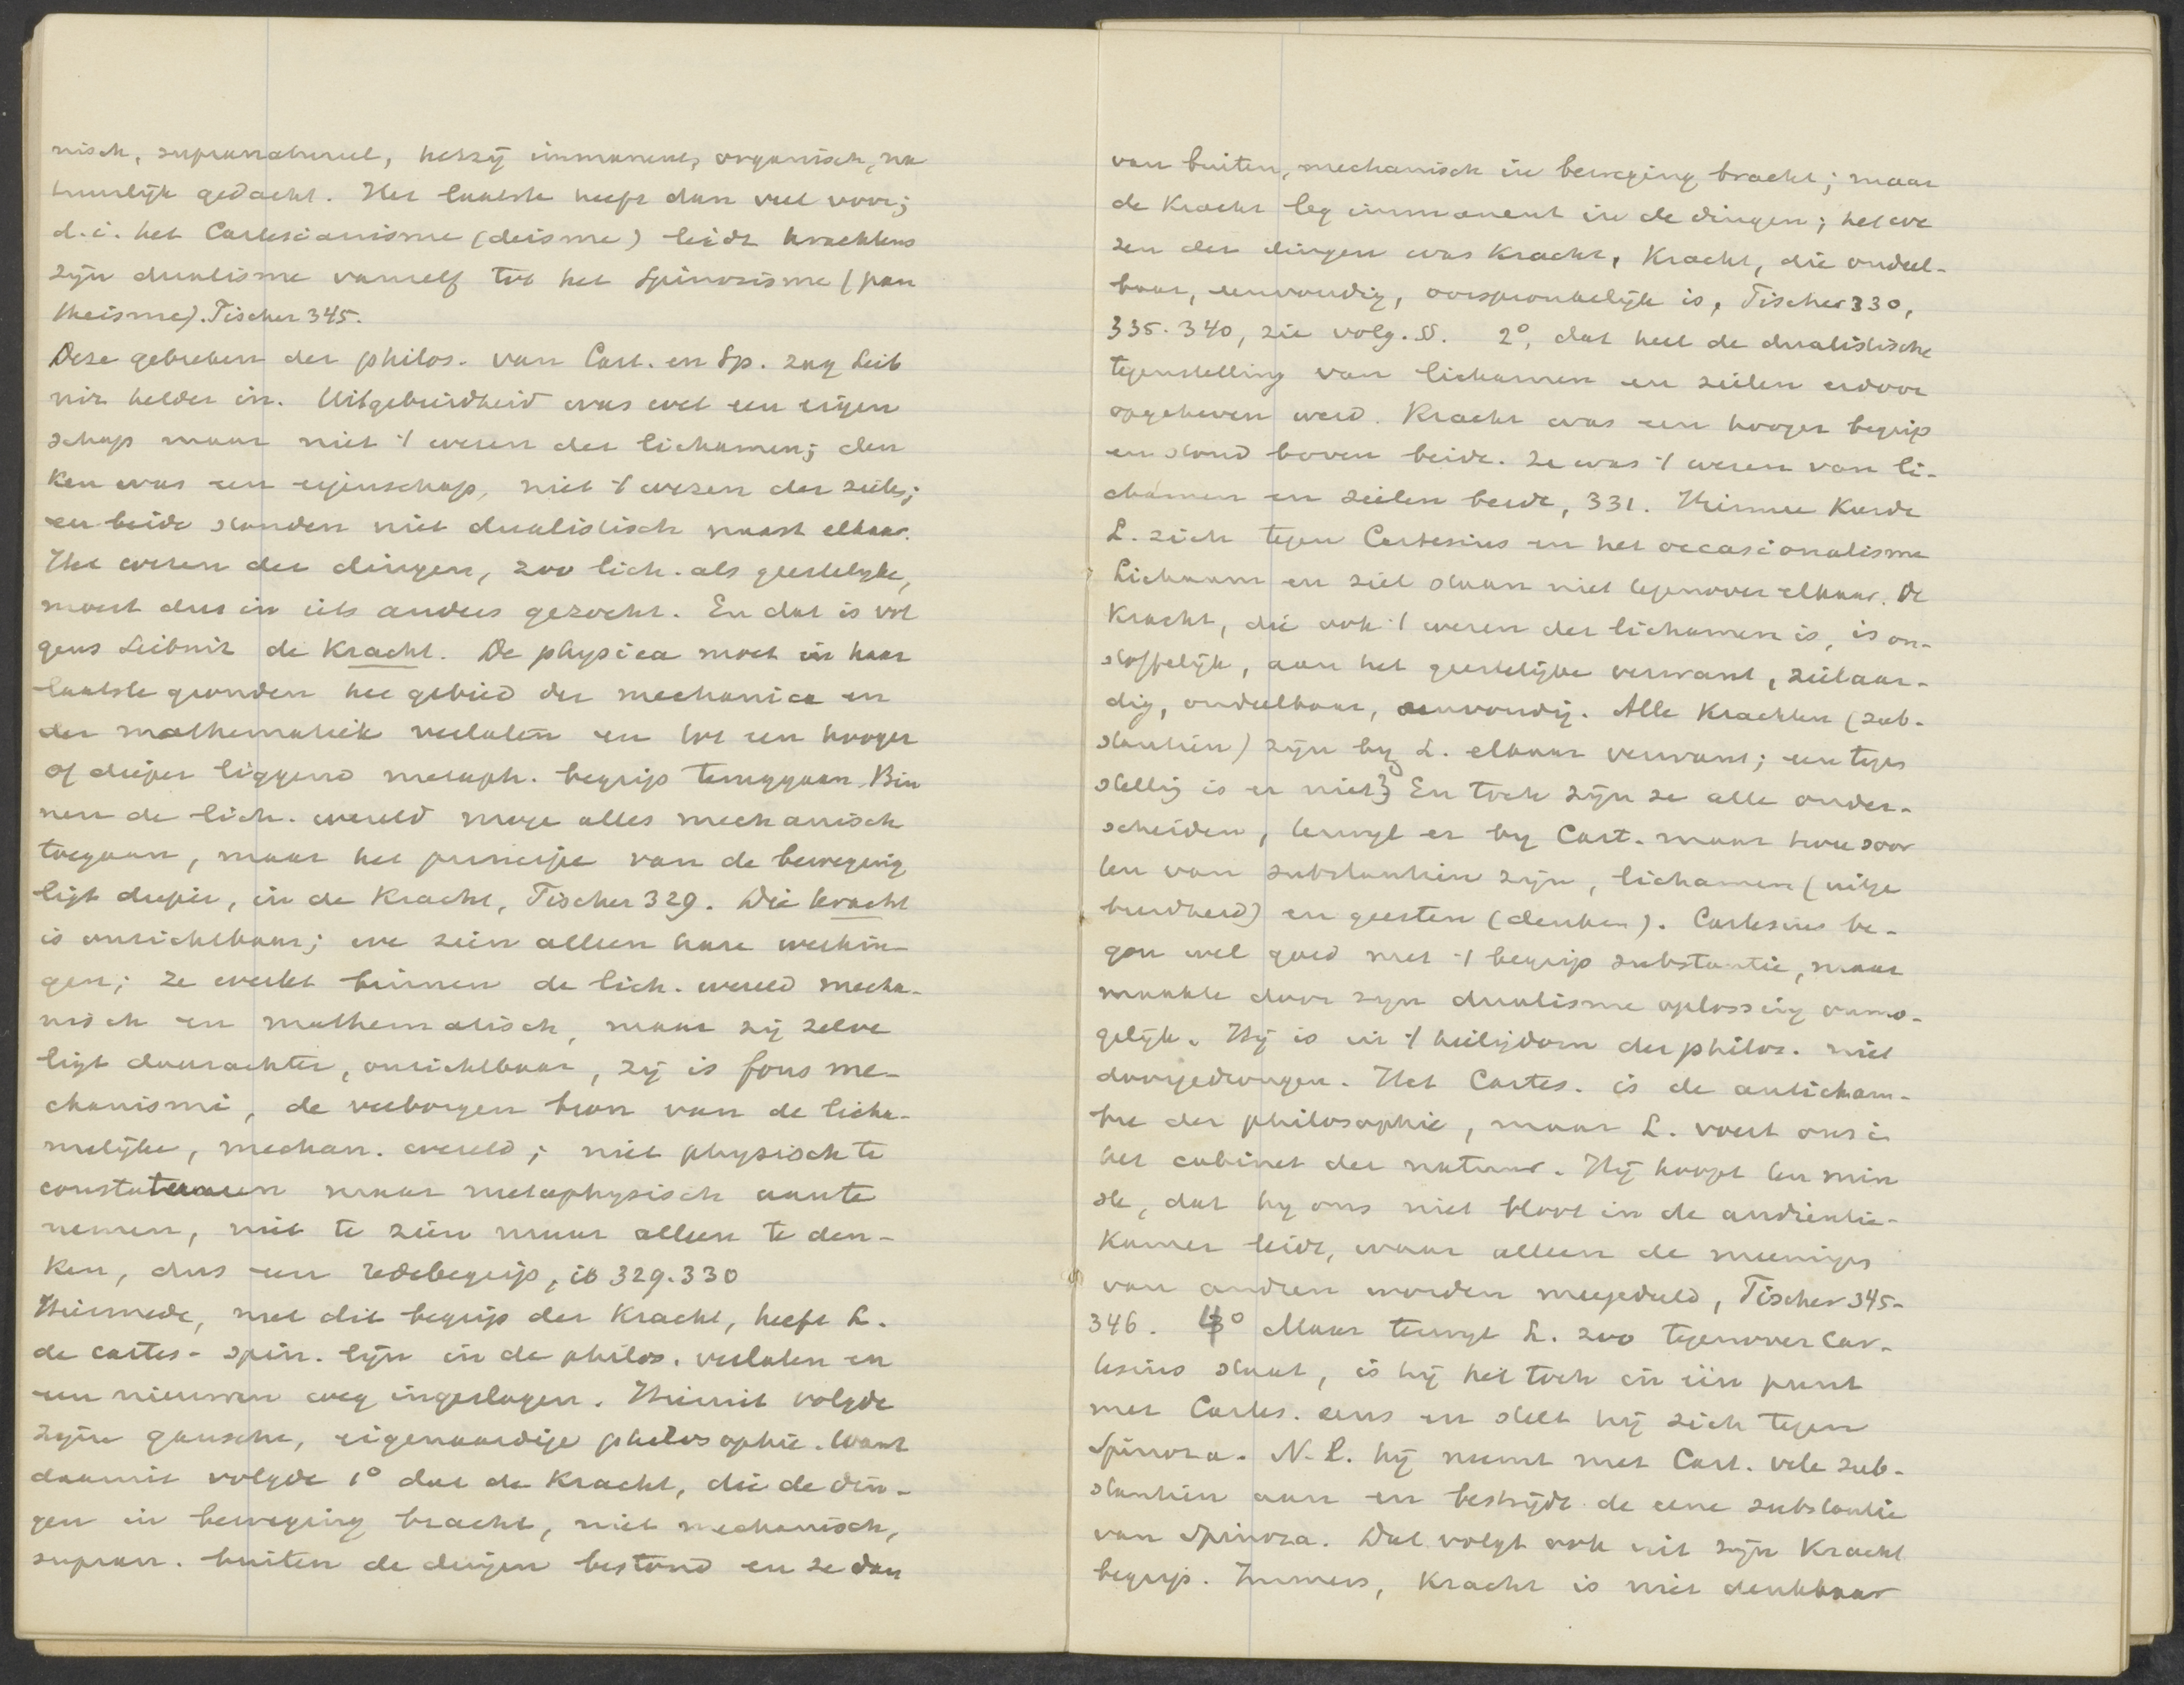 nisch, supranatureel, hetzij immanent, organisch, na
tuurlijk gedacht. Het laatste heeft dan veel voor;
d.i. het Cartesianisme (deisme) leidt krachtens
zijn dualisme vanzelf tot het Spinozisme (pan
theisme). Fischer 345.
Deze gebreken der philos. van Cart. en Sp. zag Leib
niz helder in. Uitgebreidheid was wel een eigen
schap maar niet 't wezen der lichamen; den
ken was een eigenschap, niet 't wezen der ziele;
en beide stonden niet dualistisch naast elkaar.
Het wezen der dingen, zoo lich. als geestelijke,
moest dus in iets anders gezocht. En dat is vol
gens Leibniz de Kracht. De physica moet in haar
laatste gronden het gebied der mechanica en
der mathematiek verlaten en tot een hooger
of dieper liggend metaph. begrip teruggaan. Bin
nen de lich. wereld moge alles mechanisch
toegaan, maar het principe van de beweging
ligt dieper, in de Kracht, Fischer 329. Die kracht
is onzichtbaar; we zien alleen hare werkin-
gen; ze werkt binnen de lich. wereld mecha-
nisch en mathematisch, maar zij zelve
ligt daarachter, onzichtbaar, zij is fons me-
chanismi, de verborgen bron van de licha-
melijke, mechan. wereld; niet physisch te
constateeren maar metaphysisch aan te
nemen, niet te zien maar alleen te den-
ken, dus een redebegrip, ib 329.330
Hiermede, met dit begrip der Kracht, heeft L.
de cartes-spin. lijn in de philos. verlaten en
een nieuwen weg ingeslagen. Hieruit volgde
zijne gansche, eigenaardige philosophie. Want
daaruit volgde 1° dat de Kracht, die de din-
gen in beweging bracht, niet mechanisch,
supran. buiten de dingen bestond en ze dan
van buiten, mechanisch in beweging bracht; maar
de Kracht lag immanent in de dingen; het we
zen der dingen was Kracht, Kracht, die ondeel-
baar, eenvoudig, oorspronkelijk is, Fischer 330,
335. 340, zie volg. §§. 2°, dat heel de dualistische
tegenstelling van lichamen en zielen erdoor
opgeheven werd. Kracht was een hooger begrip
en stond boven beide. Ze was 't wezen van li-
chamen en zielen beide, 331. Hiermee keerde
L. zich tegen Cartesius en het occasionalisme
Lichaam en ziel staan niet tegenover elkaar. De
Kracht, die ook 't wezen der lichamen is, is on-
stoffelijk, aan het geestelijke verwant, zielaar-
dig, ondeelbaar, eenvoudig. Alle Krachten (sub-
stantiën) zijn by L. elkaar verwant; een tegen
stelling is er niet} En toch zijn ze alle onder-
scheiden, terwijl er by Cart. maar twee soor
ten van substantiën zijn, lichamen (uitge
breidheid) en geesten (denken). Cartesius be-
gon wel goed met 't begrip substantie, maar
maakte door zijn dualisme oplossing onmo-
gelijk. Hij is in 't heiligdom der philos. niet
doorgedrongen. Het Cartes. is de anticham-
bre der philosophie, maar L. voert ons in
het cabinet der natuur. Hij hoopt ten min
ste, dat hy ons niet bloot in de audientie-
kamer leidt, waar alleen de meeningen
van anderen worden meegedeeld, Fischer 345-
346. 4° Maar terwijl L. zoo tegenover Car-
tesius staat, is hij het toch in één punt
met Cartes. eens en stelt hij zich tegen
Spinoza. N.l. hij neemt met Cart. vele sub-
stantiën aan en bestrijdt de eene substantie
van Spinoza. Dat volgt ook uit zijn Kracht
begrip. Immers, Kracht is niet denkbaar